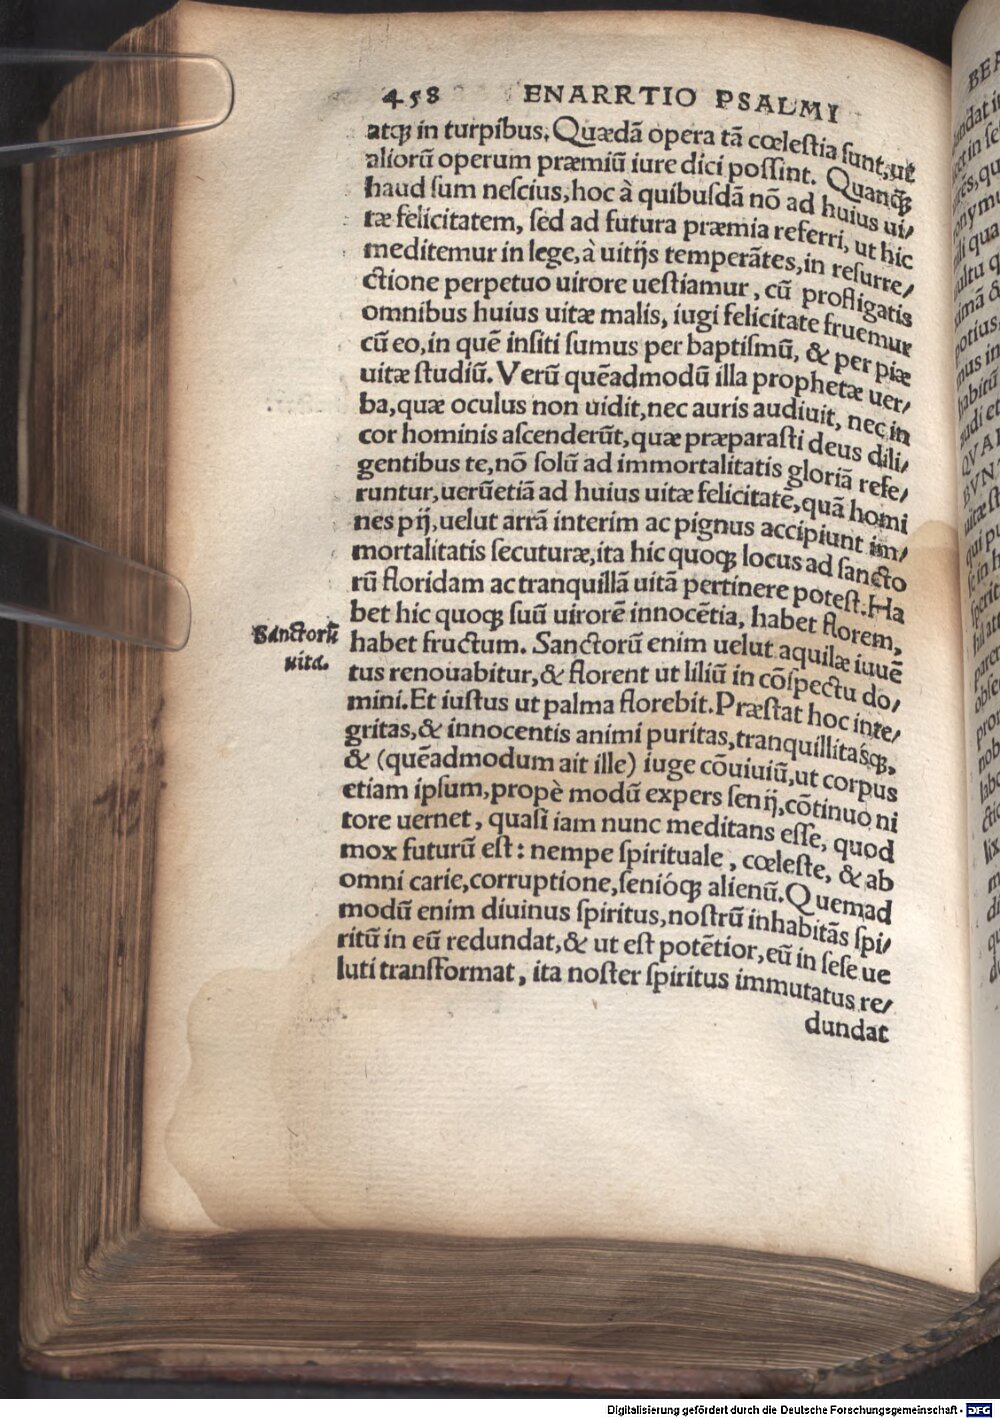 458 ENARRTIO PSALMI
atqꝫ in turpibus. Quædã opera tã cœleſtia ſunt, ut
aliorũ operum præmiũ iure dici poſſint. Quanq̃ꝫ
haud ſum neſcius, hoc à quibuſdã nõ ad huius ui/
tæ felicitatem, ſed ad futura præmia referri, ut hic
meditemur in lege, à uitijs temperãtes, in reſurre/
ctione perpetuo uirore ueſtiamur, cũ profligatis
omnibus huius uitæ malis, iugi felicitate fruemur
cũ eo, in quẽ inſiti ſumus per baptiſmũ, & per piæ
uitæ ſtudiũ. Verũ quẽadmodũ illa prophetæ uer/
ba, quæ oculus non uidit, nec auris audiuit, nec in
cor hominis aſcenderũt, quæ præparaſti deus dili/
gentibus te, nõ ſolũ ad immortalitatis gloriã refe/
runtur, uerũetiã ad huius uitæ felicitatẽ, quã homi
nes pij, uelut arrã interim ac pignus accipiunt im/
mortalitatis ſecuturæ, ita hic quoqꝫ locus ad ſancto
rũ floridam ac tranquillã uitã pertinere poteſt. Ha
bet hic quoqꝫ ſuũ uirorẽ innocẽtia, habet florem,
Sanctorũ
uita.
habet fructum. Sanctorũ enim uelut aquilæ iuuẽ
tus renouabitur, & florent ut liliũ in cõſpectu do/
mini. Et iuſtus ut palma florebit. Præſtat hoc inte/
gritas, & innocentis animi puritas, tranquillitásqꝫ,
& (quẽadmodum ait ille) iuge cõuiuiũ, ut corpus
etiam ipſum, propè modũ expers ſenij, cõtinuo ni
tore uernet, quaſi iam nunc meditans eſſe, quod
mox futurũ eſt: nempe ſpirituale, cœleſte, & ab
omni carie, corruptione, ſenióqꝫ alienũ. Quemad
modũ enim diuinus ſpiritus, noſtrũ inhabitãs ſpi/
ritũ in eũ redundat, & ut eſt potẽtior, eũ in ſeſe ue
luti transformat, ita noſter ſpiritus immutatus re/
dundat
Digitalisierung gefördert durch die Deutsche Forschungsgemeinschaft - DFG